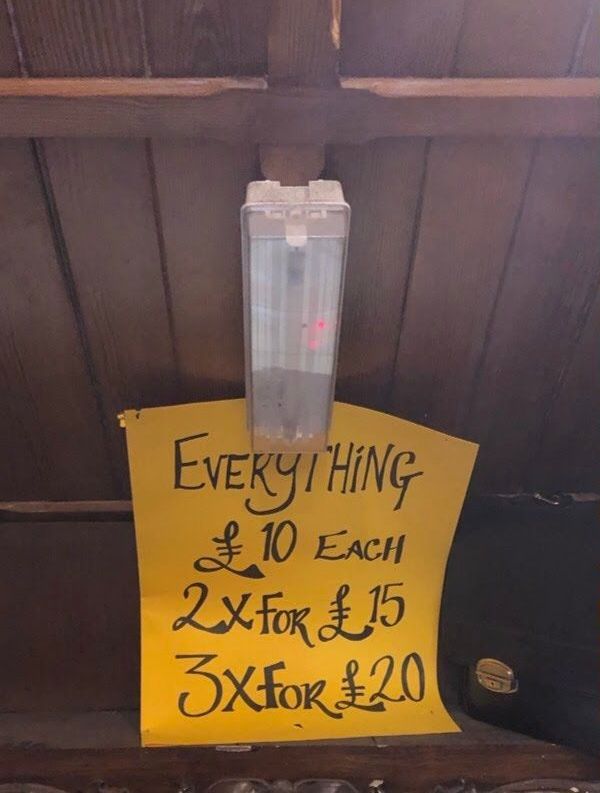 EVERYTHING
£10 EACH
2X FOR £15
3X FOR £20